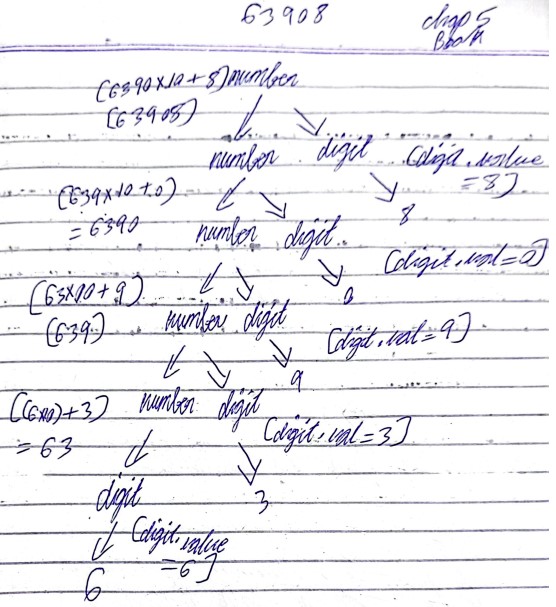 63908
chap 5
Book
(6390x10 + 8) number
(63908)
number digit (digit.value
= 8)
(639x10 + 0)
= 6390
8
number digit
(digit.val = 0)
(63x10 + 9)
(639)
0
number digit
(digit.val = 9)
9
((6x10) + 3) number digit
= 63
(digit.val = 3)
digit
3
(digit.value
= 6)
6